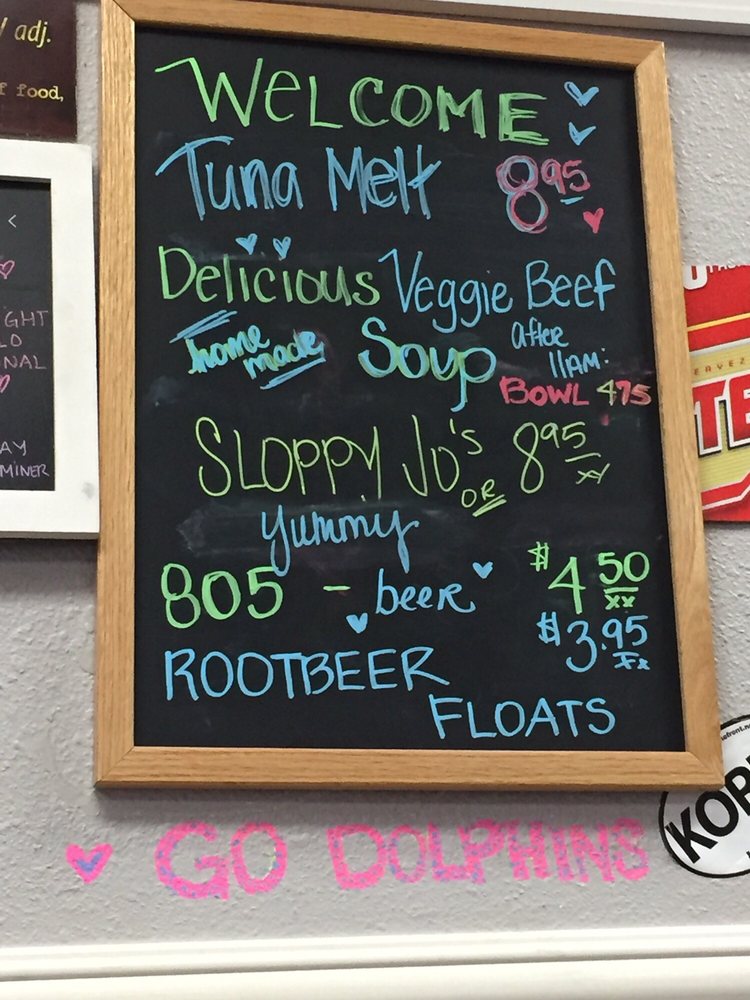 / adj.
f food,
<
GHT
LO
NAL
AY
MINER
WELCOME
Tuna Melt 8 95
Delicious Veggie Beef
home made Soup after 11AM:
BOWL 475
SLOPPY JO'S OR 8 95 xx
Yummy
805 - beer $4 50 xx
$3.95 xx
ROOTBEER
FLOATS
ERVEZ
TE
KOR
GO DOLPHINS